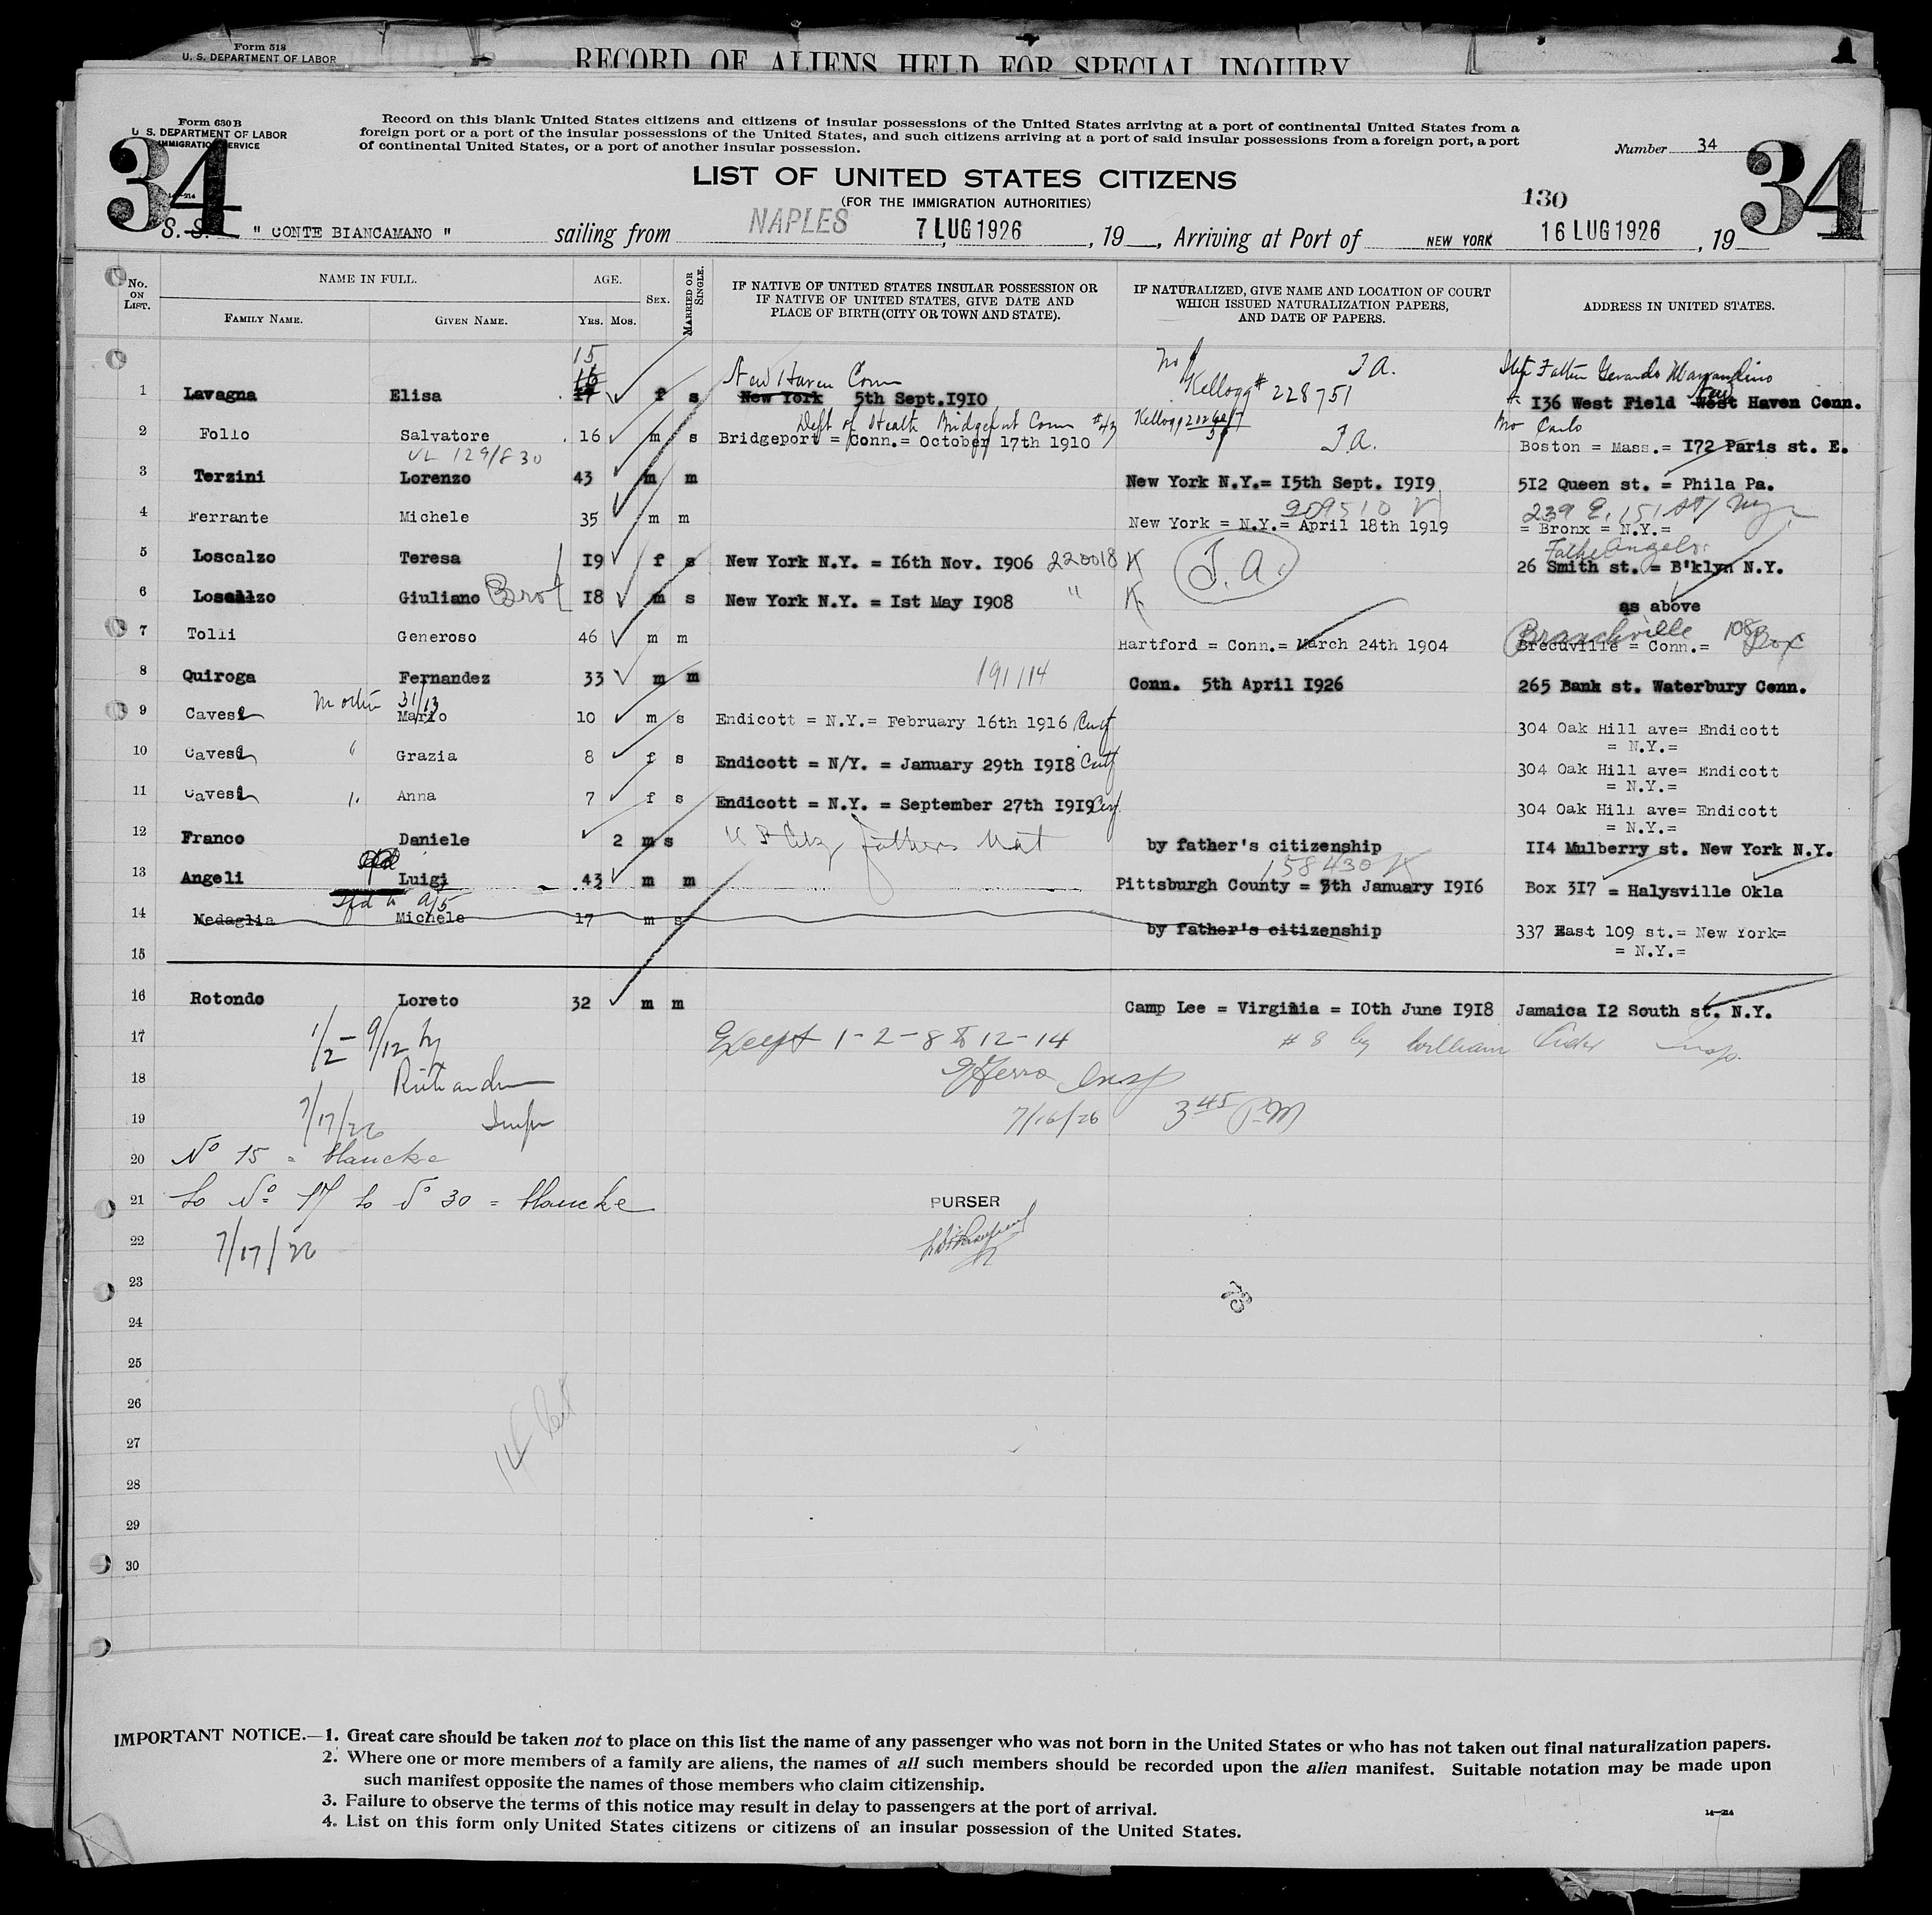 Form 518
U. S. DEPARTMENT OF LABOR
RECORD OF ALIENS HELD FOR SPECIAL INQUIRY
1
Form 630 B
U. S. DEPARTMENT OF LABOR
IMMIGRATION SERVICE
34
Record on this blank United States citizens and citizens of insular possessions of the United States arriving at a port of continental United States from a
foreign port or a port of the insular possessions of the United States, and such citizens arriving at a port of said insular possessions from a foreign port, a port
of continental United States, or a port of another insular possession.
Number 34
34
LIST OF UNITED STATES CITIZENS
(FOR THE IMMIGRATION AUTHORITIES)
130
S. S. " CONTE BIANCAMANO " sailing from NAPLES 7 LUG 1926, 19 , Arriving at Port of NEW YORK 16 LUG 1926, 19
No. ON LIST. NAME IN FULL. AGE. SEX. MARRIED OR SINGLE. IF NATIVE OF UNITED STATES INSULAR POSSESSION OR IF NATIVE OF UNITED STATES, GIVE DATE AND PLACE OF BIRTH (CITY OR TOWN AND STATE). IF NATURALIZED, GIVE NAME AND LOCATION OF COURT WHICH ISSUED NATURALIZATION PAPERS, AND DATE OF PAPERS. ADDRESS IN UNITED STATES.
FAMILY NAME. GIVEN NAME. YRS. MOS.
15
16
New Haven Conn
no
Kellogg # 228751
T A.
Step Father Gerardo
1 Lavagna Elisa 17 f s New York 5th Sept. 1910 136 West Field West New Haven Conn.
Dept of Health Bridgeport Conn #43 Kellogg
T A.
Carlo
2 Follo Salvatore 16 m s Bridgeport = Conn.= October 17th 1910 Boston = Mass.= 172 Paris st. E.
VL 129/830
3 Terzini Lorenzo 43 m m New York N.Y.= 15th Sept. 1919 512 Queen st. = Phila Pa.
209510
239 E. 151 St Ny
4 Ferrante Michele 35 m m New York = N.Y.= April 18th 1919 = Bronx = N.Y.=
Father Angelo
5 Loscalzo Teresa 19 f s New York N.Y. = 16th Nov. 1906 220018 K T.A. 26 Smith st. = B'klyn N.Y.
6 Loscalzo Giuliano Bro 18 m s New York N.Y. = 1st May 1908 " K as above
Branchville 108 Box
7 Tolli Generoso 46 m m Hartford = Conn.= March 24th 1904 Brecuville = Conn.=
8 Quiroga Fernandez 33 m m 191114 Conn. 5th April 1926 265 Bank st. Waterbury Conn.
Mother 31/13
9 Cavesi Mario 10 m s Endicott = N.Y.= February 16th 1916 304 Oak Hill ave= Endicott
= N.Y.=
10 Cavesi " Grazia 8 f s Endicott = N/Y. = January 29th 1918 304 Oak Hill ave= Endicott
= N.Y.=
11 Cavesi " Anna 7 f s Endicott = N.Y. = September 27th 1919 304 Oak Hill ave= Endicott
= N.Y.=
12 Franco Daniele 2 m s U S Citz fathers Nat by father's citizenship 114 Mulberry st. New York N.Y.
158430 K
13 Angeli Luigi 43 m m Pittsburgh County = 5th January 1916 Box 317 = Halysville Okla
14 Medaglia Michele 17 m s by father's citizenship 337 East 109 st.= New York=
= N.Y.=
15
16 Rotondo Loreto 32 m m Camp Lee = Virginia = 10th June 1918 Jamaica 12 South st. N.Y.
17 1/2 - 9/12 by Except 1-2-8 to 12-14 # 8 by William Insp.
18 Insp
19 7/17/26 Insp 7/16/26 3 45 PM
20 No 15 = blancke
21 to No 17 to No 30 = blancke PURSER
22 7/17/26
23
24
25
26
27
28
29
30
IMPORTANT NOTICE.—1. Great care should be taken not to place on this list the name of any passenger who was not born in the United States or who has not taken out final naturalization papers.
2. Where one or more members of a family are aliens, the names of all such members should be recorded upon the alien manifest. Suitable notation may be made upon
such manifest opposite the names of those members who claim citizenship.
3. Failure to observe the terms of this notice may result in delay to passengers at the port of arrival.
4. List on this form only United States citizens or citizens of an insular possession of the United States.
14—214